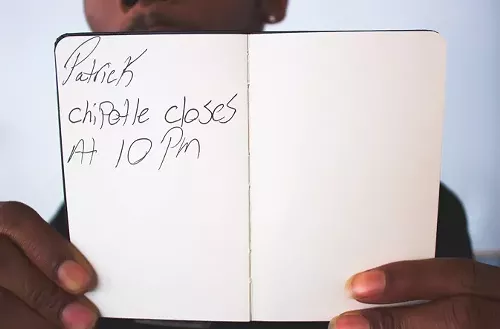 Patrick
chipotle closes
At 10 Pm